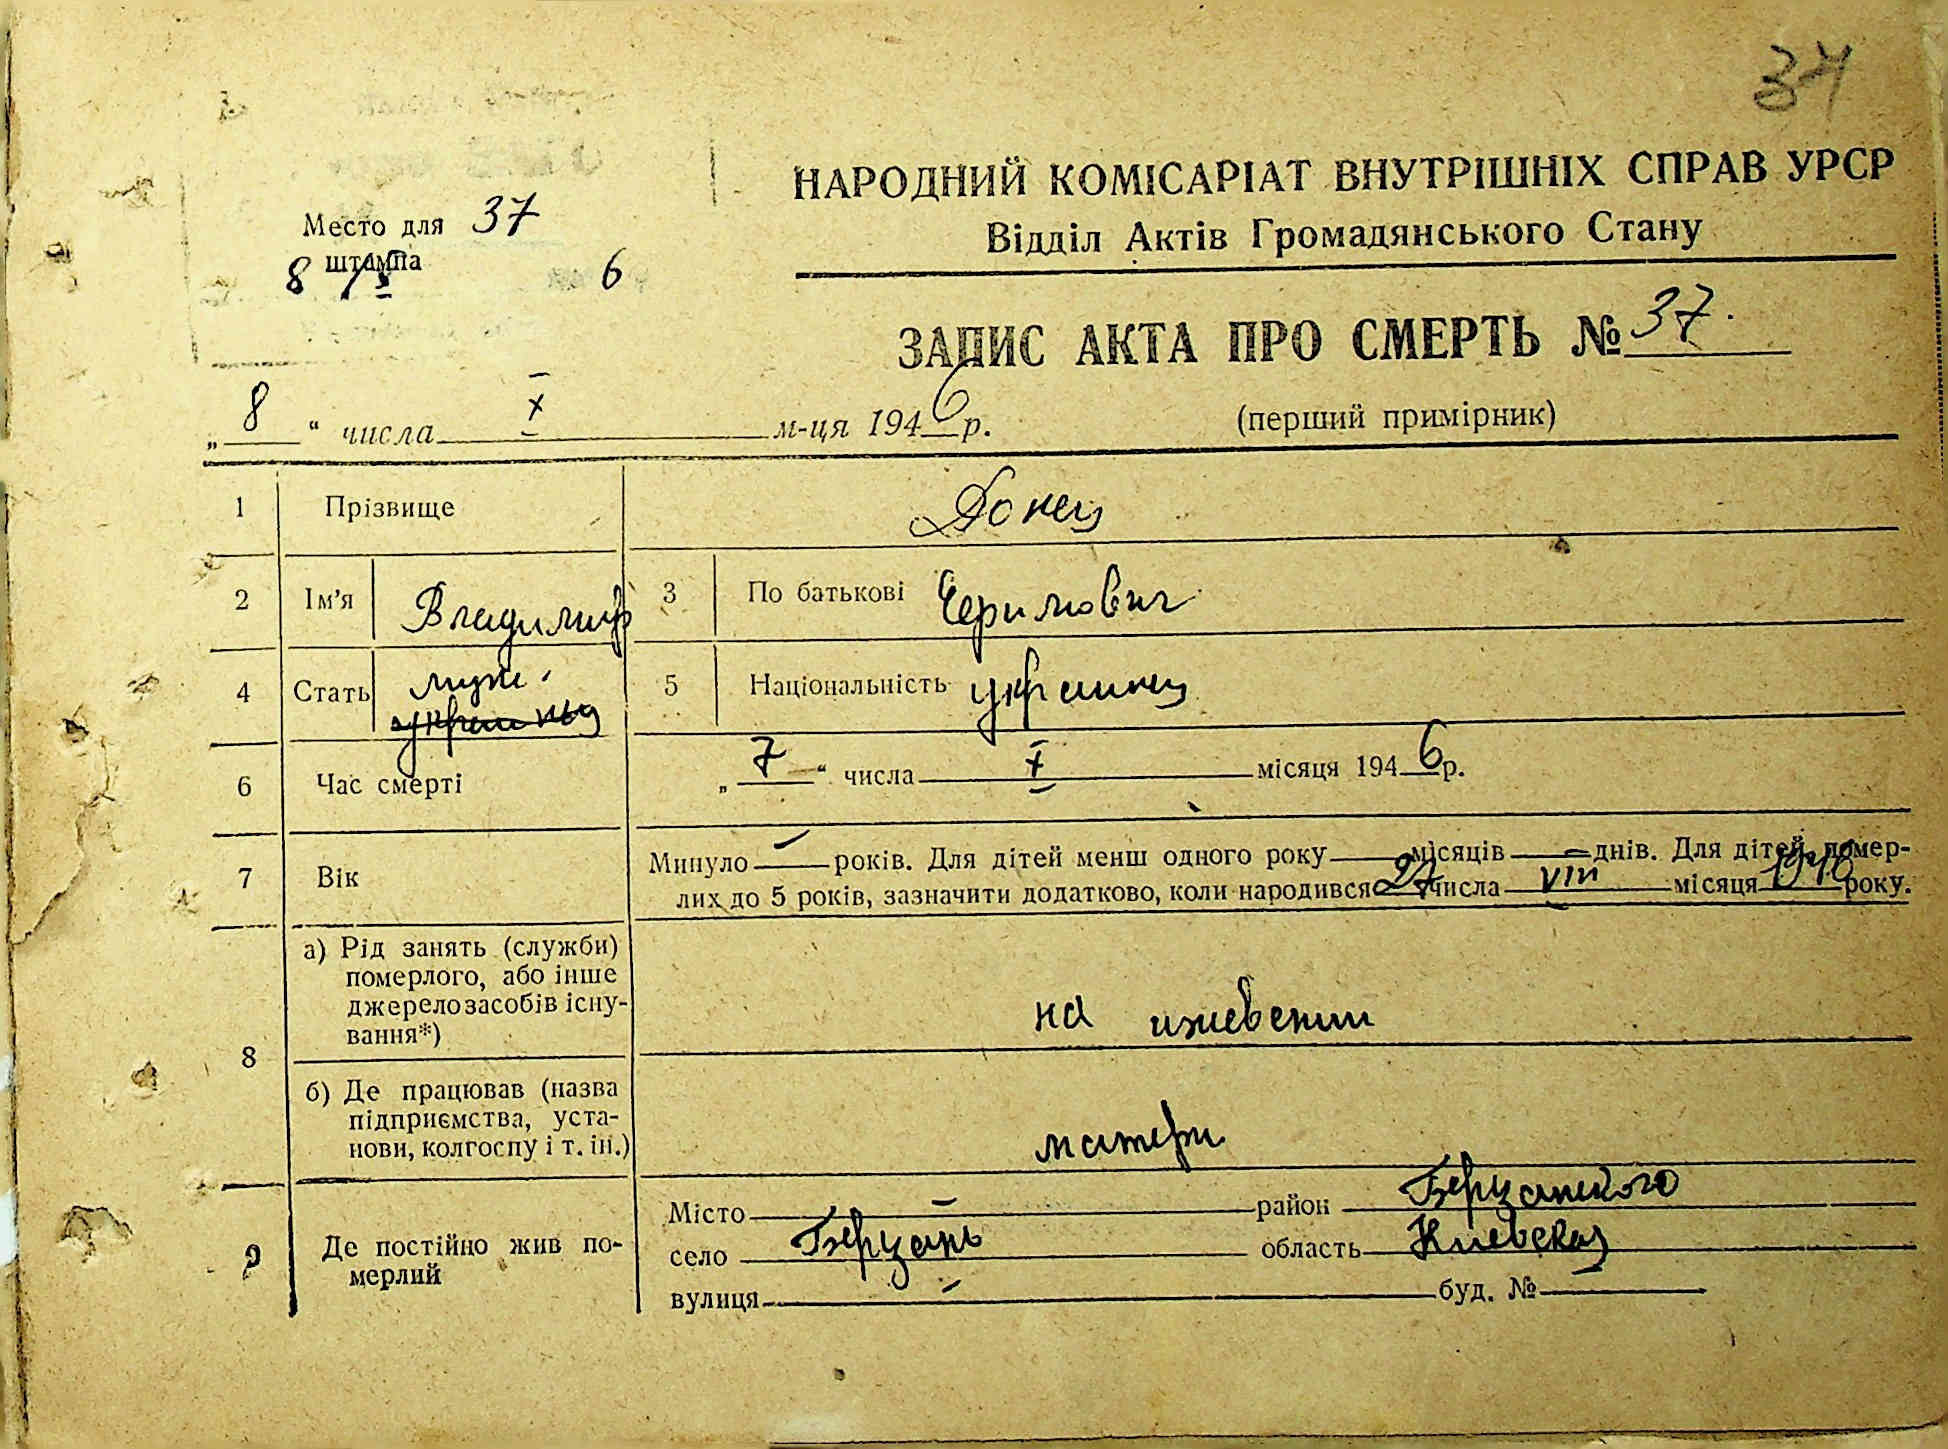 37
НАРОДНИЙ КОМІСАРІАТ ВНУТРІШНІХ СПРАВ УРСР
Відділ Актів Громадянського Стану
Место для 37
штампа
8 / X 6
ЗАПИС АКТА ПРО СМЕРТЬ № 37.
(перший примірник)
„ 8 “ числа X м-ця 1946 р.
1 Прізвище Донец
2 Ім'я Владимир 3 По батькові
4 Стать муж. украинец 5 Національність украинец
6 Час смерті „ 7 “ числа X місяця 1946 р.
7 Вік Минуло — років. Для дітей менш одного року місяців — днів. Для дітей, помер-
лих до 5 років, зазначити додатково, коли народився 27 числа VIII місяця 1946 року.
8 а) Рід занять (служби)
померлого, або інше
джерело засобів існу-
вання*) на ижевении
б) Де працював (назва
підприємства, уста-
нови, колгоспу і т. ін.) матери
9 Де постійно жив по-
мерлий
Місто — район Берзанского
село Берзань область Киевская
вулиця — буд. №